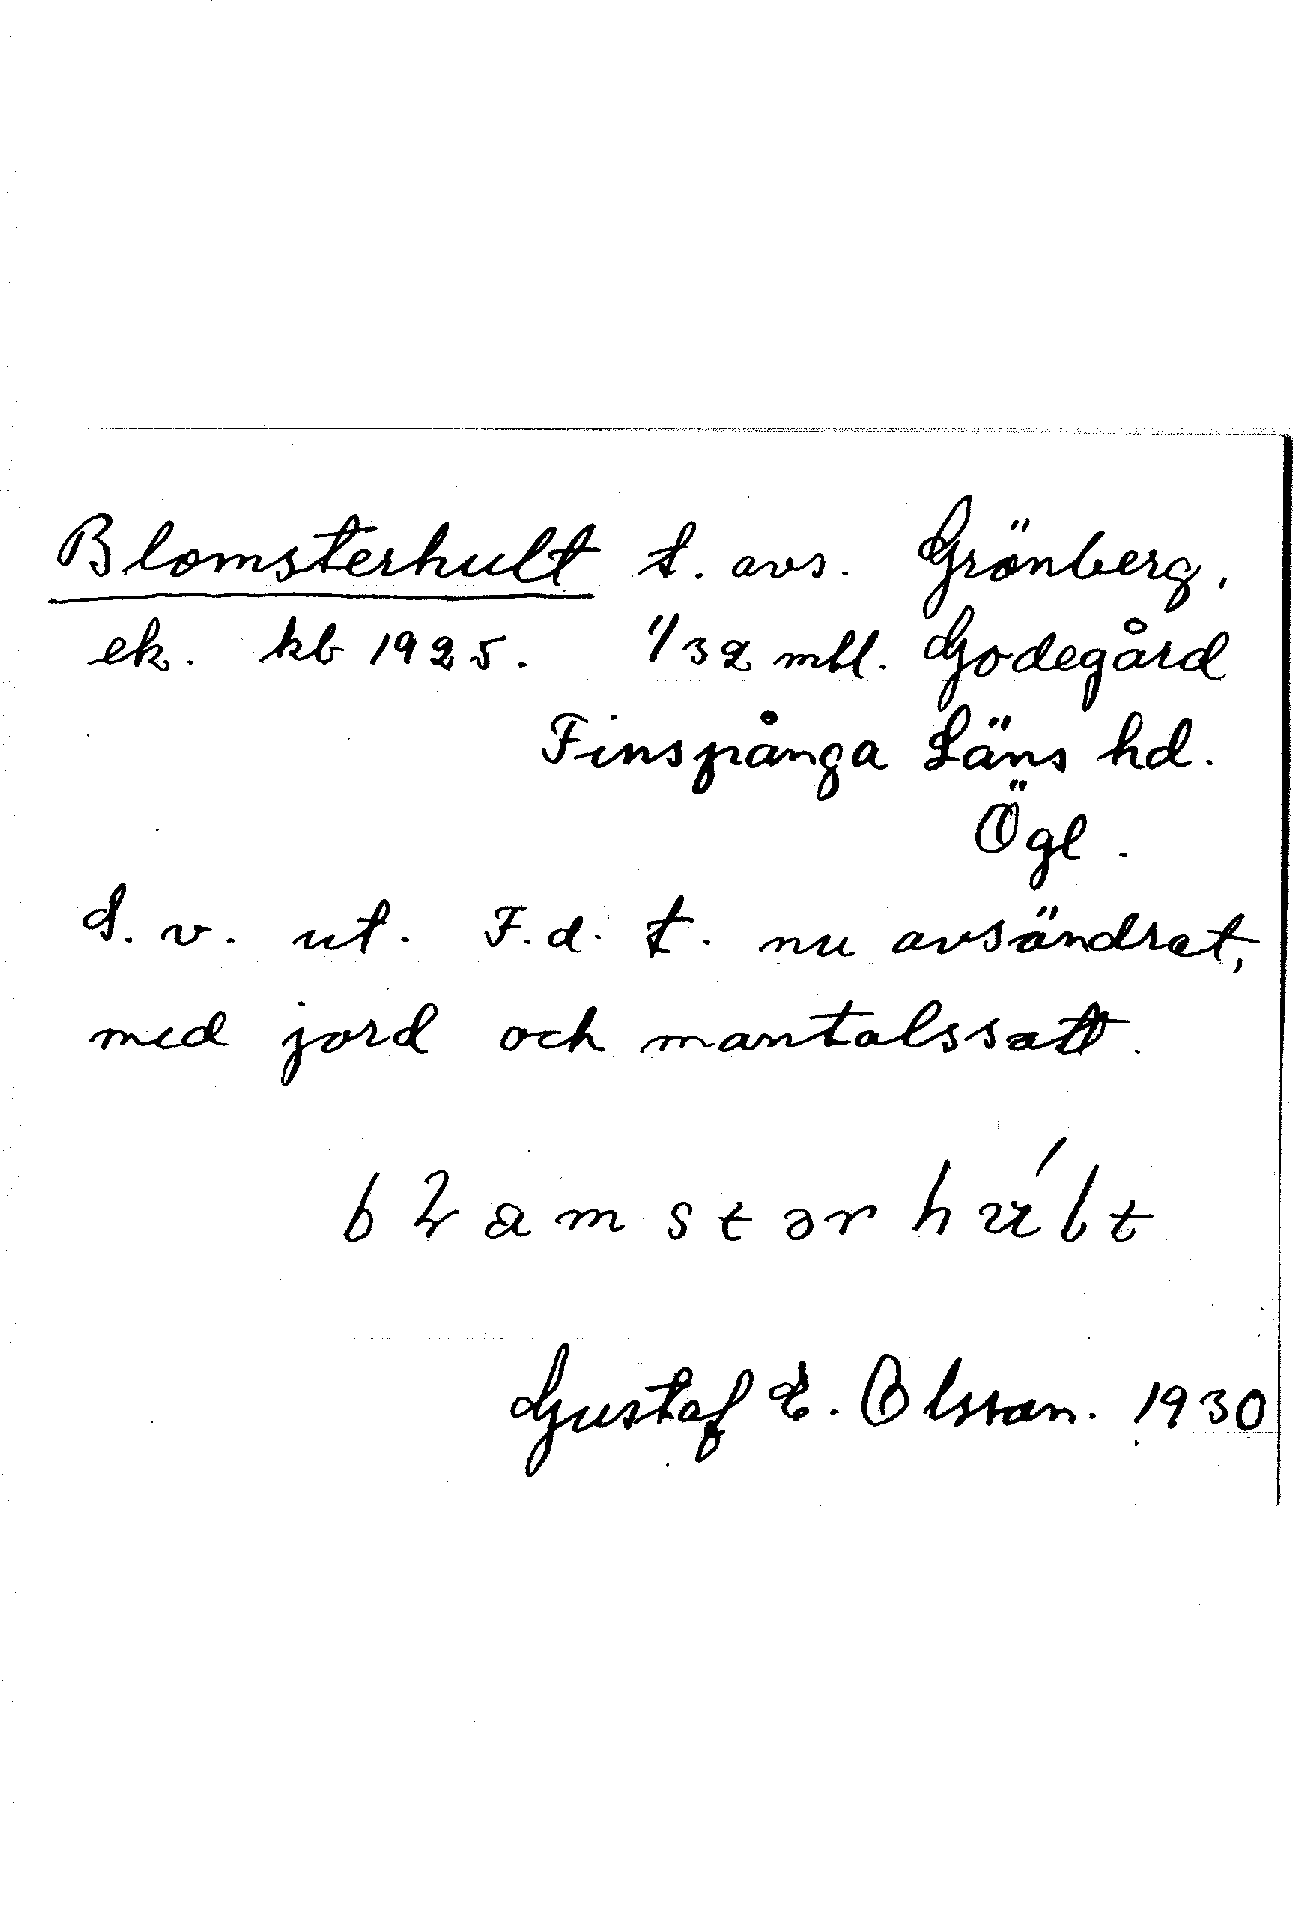 Blomsterhult t. avs. Grönberg,
ek. kb 1925. 1/32 mtl. Godegård
Finspånga Läns hd.
Ögl.
S.v. ut. F.d. t. nu avsöndrat,
med jord och mantalssatt.
Gustaf E. Olsson. 1930